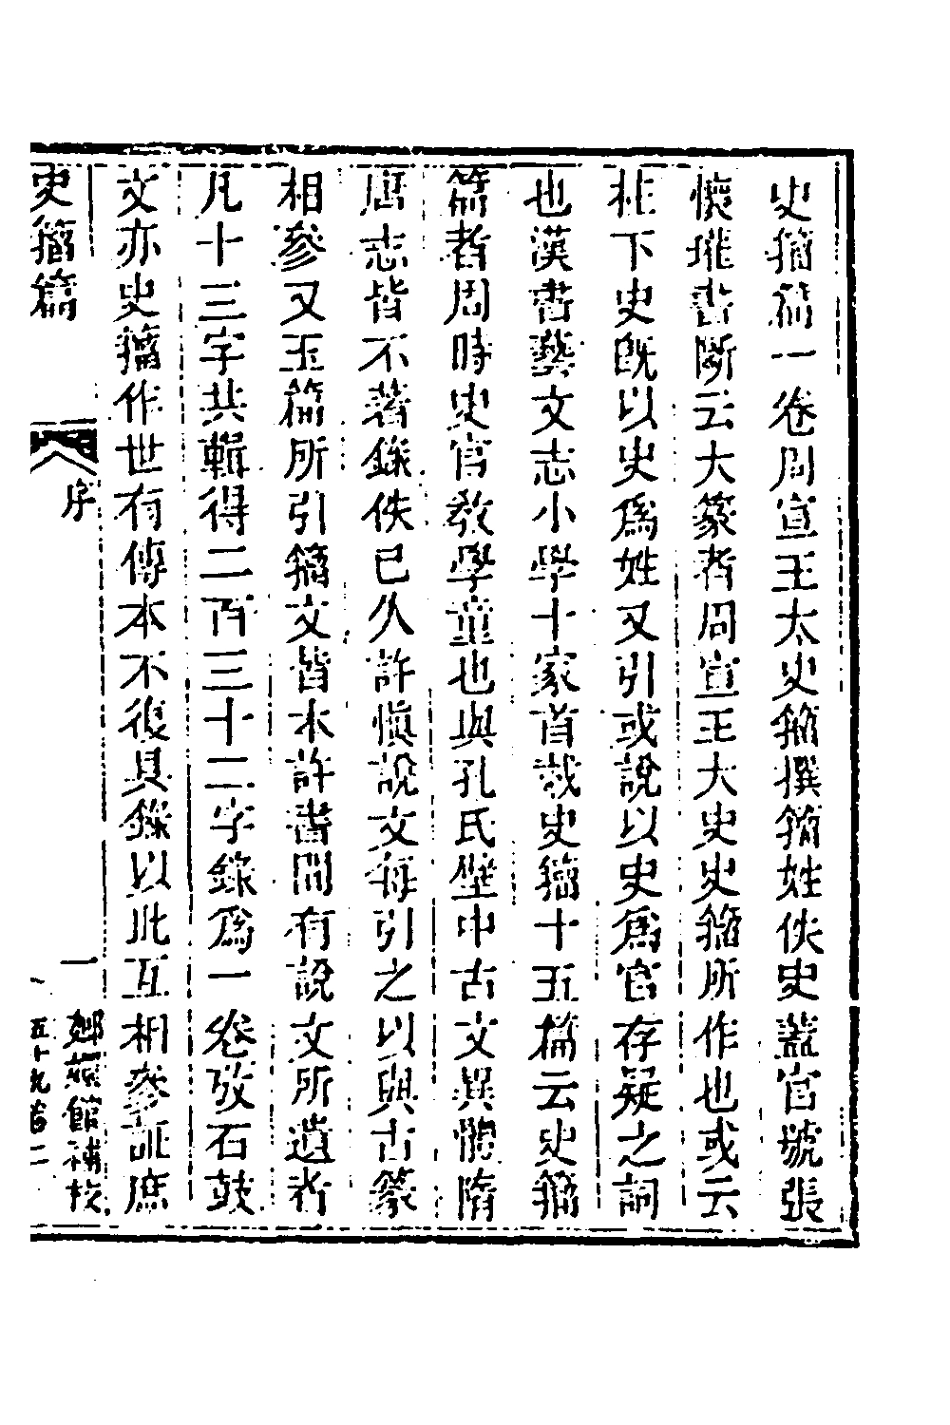 史籀篇一卷周宣王太史籀撰籀姓佚史蓋官號張
懷瓘書斷云大篆者周宣王大史史籀所作也或云
柱下史旣以史爲姓又引或說以史爲官存疑之詞
也漢書藝文志小學十家首載史籀十五篇云史籀
篇者周時史官敎學童也與孔氏壁中古文異體隋
唐志皆不著錄佚已久許愼說文每引之以與古篆
相參又玉篇所引籀文皆本許書間有說文所遺者
凡十三字共輯得二百三十二字錄爲一卷攷石鼓
文亦史籀作世有傳本不復具錄以此互相參証庶
史籀篇
序
一
嫏嬛館補校
五十九 二